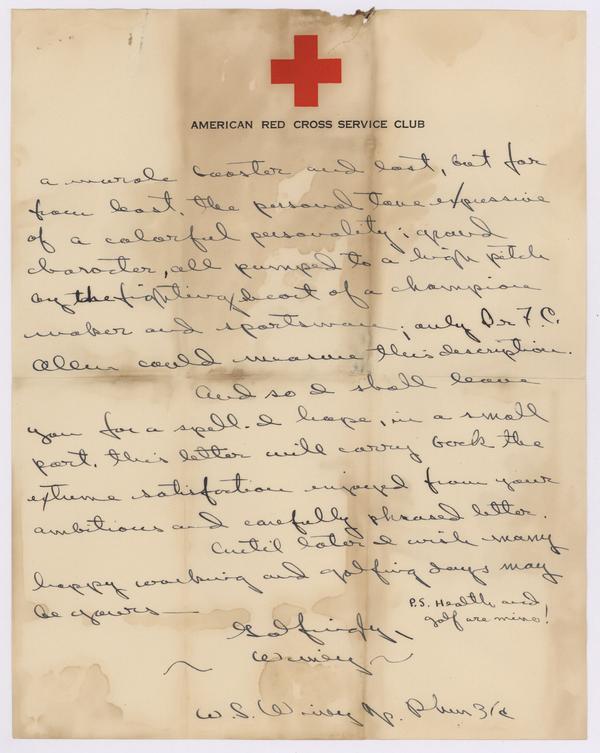 AMERICAN RED CROSS SERVICE CLUB
a morale booster and last, but far
from least. the personal tone expressive
of a colorful personality; grand
character, all pumped to a high pitch
by the fighting heart of a champion
maker and sportsman; only Dr. F.C.
Allen could measure this description.
And so I shall leave
you for a spell. I hope, in a small
part, this letter will carry back the
extreme satisfaction enjoyed from your
ambitious and carefully phrased letter.
Until later I wish many
happy working and golfing days may
be yours—
P.S. Health and
golf are mine!
Golfingly,
~ ~
W.S. Jr. PhM 3/c